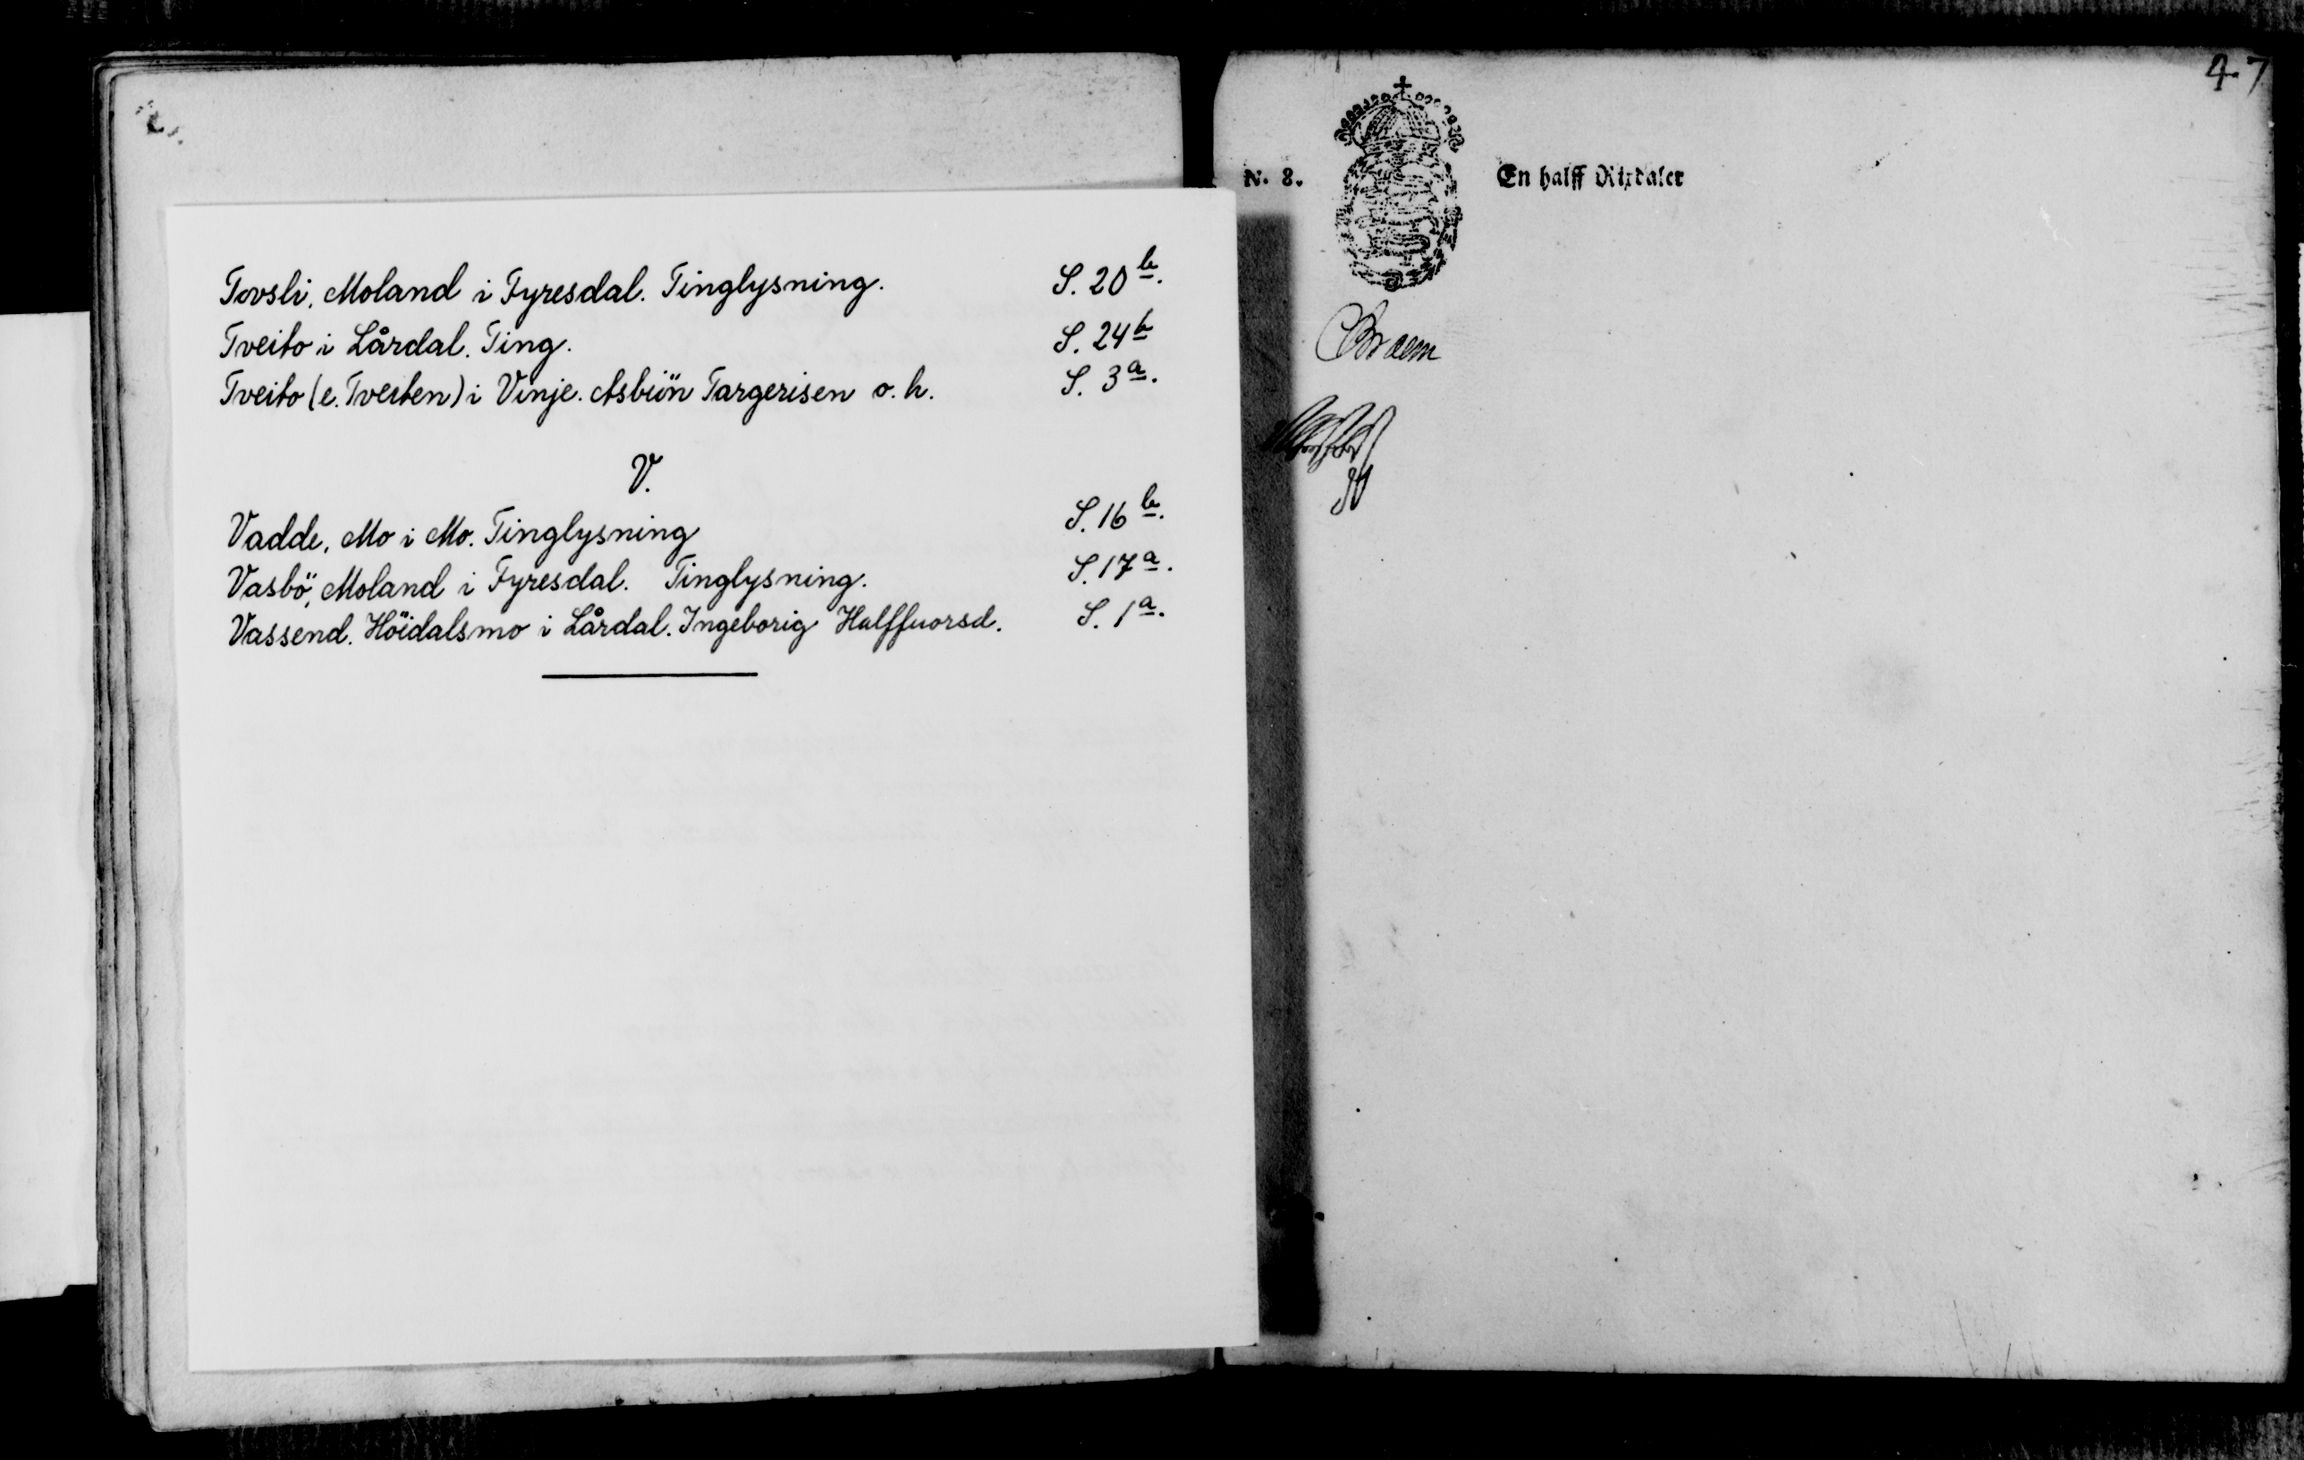 Tovsli, Moland i Fyresdal. Tinglysning. S. 20 b.
Tveito i Lårdal. Ting. S. 24 b
Tveito (e. Tveiten) i Vinje. Asbiön Targerisen o. h. S. 3 a.
V.
Vadde, Mo i Mo. Tinglysning S. 16 b.
Vasbö, Moland i Fyresdal. Tinglysning. S. 17 a.
Vassend. Höidalsmo i Lårdal. Ingeborig Halffuorsd. S. 1 a.
47
N. 8. En halff Rixdaler
Braem